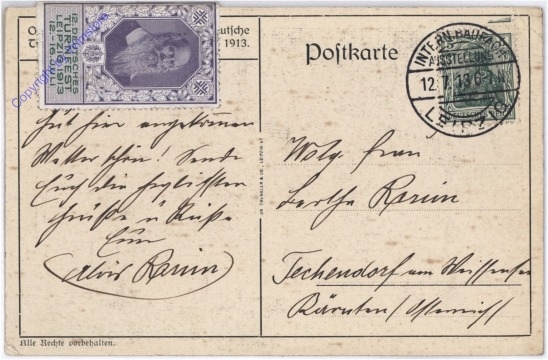 12. DEUTSCHES
TURNFEST
LEIPZIG 1913
12.-16. JULI
Deutsche
1913.
Postkarte
INTERN. BAUFACH
AUSSTELLUNG
12. 7. 13. 6-7 N
LEIPZIG
Gut hier angekommen
Wetter schön! Sende
Euch die herzlichsten
Grüße u Küsse
Euer
Alois Ramin
Wolg. Frau
Bertha Ramin
Techendorf am Weissensee
Kärnten/Österreich/
Alle Rechte vorbehalten.
Copyright